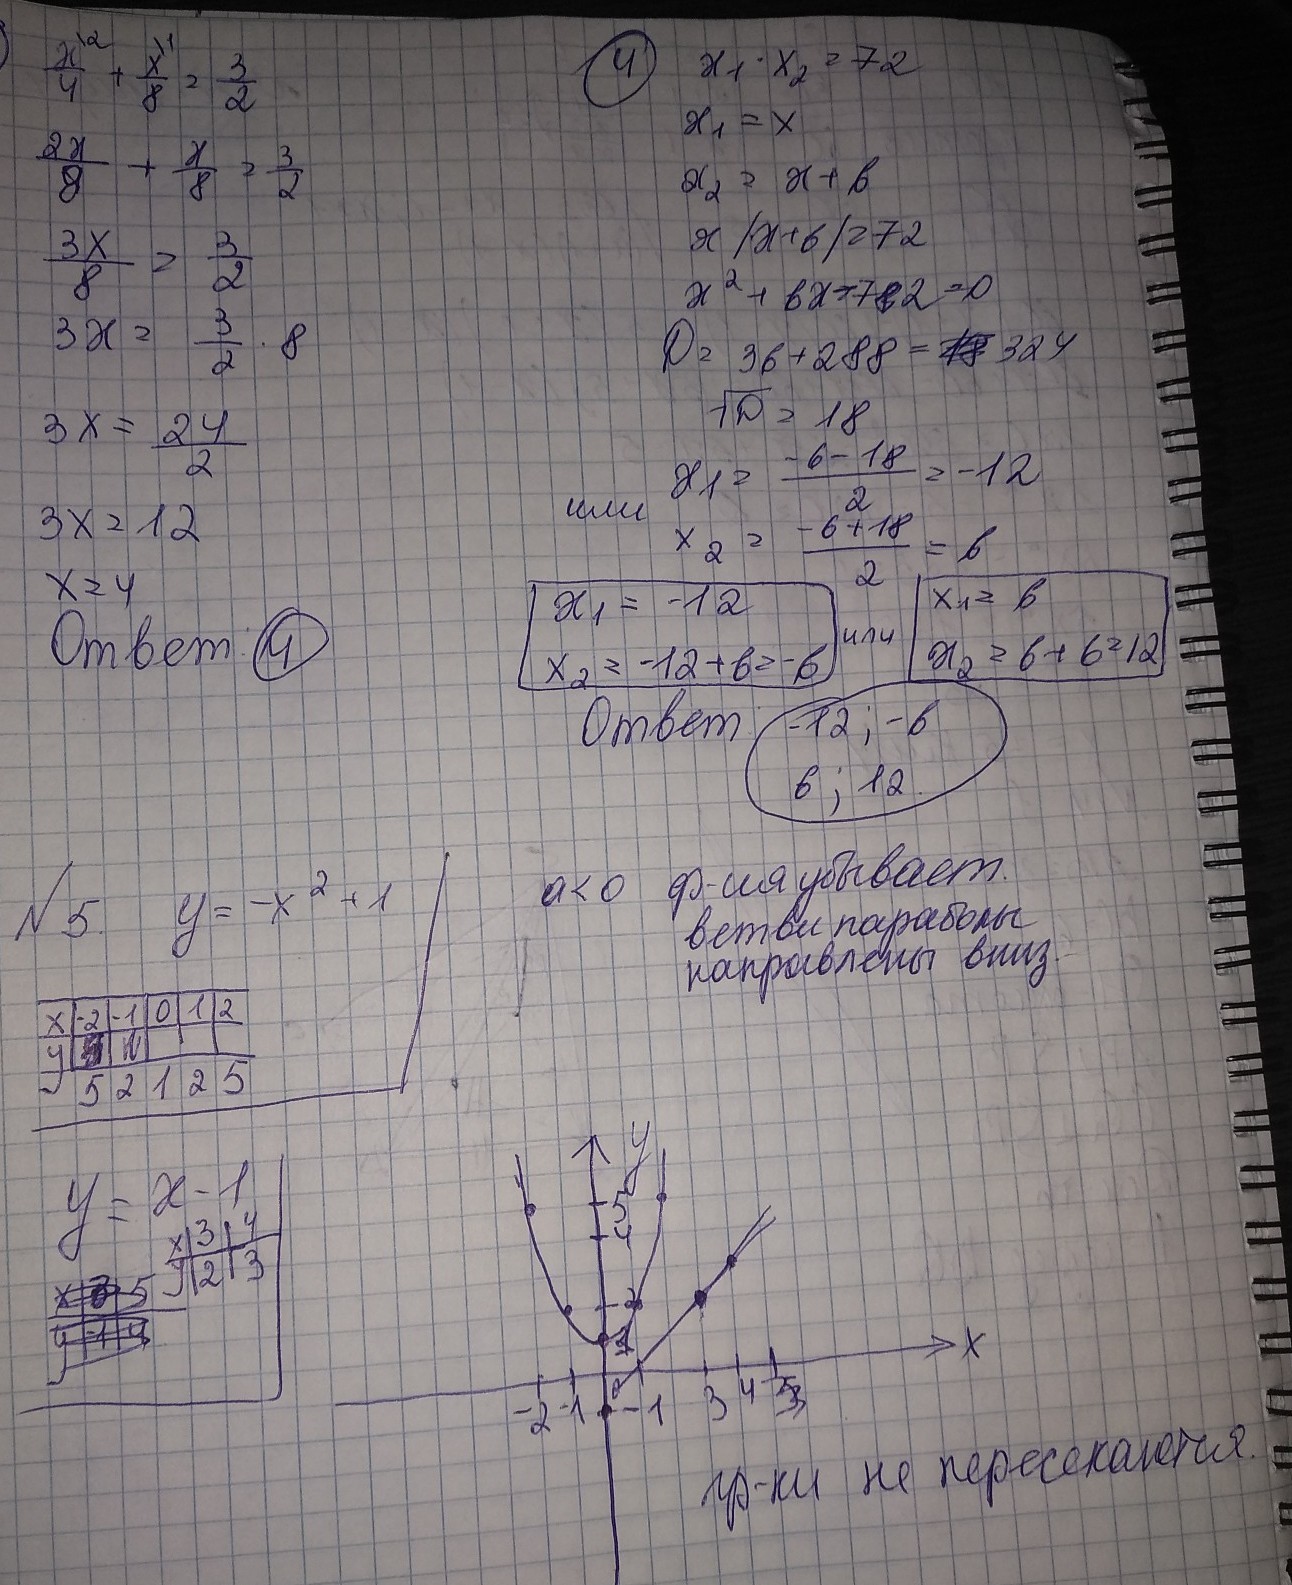 x\2/4 + x\1/8 = 3/2
2x/8 + x/8 = 3/2
3x/8 = 3/2
3x = 3/2 · 8
3x = 24/2
3x = 12
x = 4
Ответ: 4
4
x₁ · x₂ = 72
x₁ = x
x₂ = x + 6
x (x+6) = 72
x² + 6x - 72 = 0
D = 36 + 288 = 324
√D = 18
x₁ = -6-18/2 = -12
или
x₂ = -6+18/2 = 6
x₁ = -12
x₂ = -12+6=-6
или
x₁ = 6
x₂ = 6+6=12
Ответ: -12; -6
6; 12.
№5. y = -x² + 1
a<0 ф-ия убывает.
ветви параболы
направлены вниз.
x -2 -1 0 1 2
y
5 2 1 2 5
y = x - 1
x 3 4
y 2 3
x 3 5
y
y
5
4
2
1
x
-2 -1 0 -1 3 4 5
гр-ки не пересекаются.